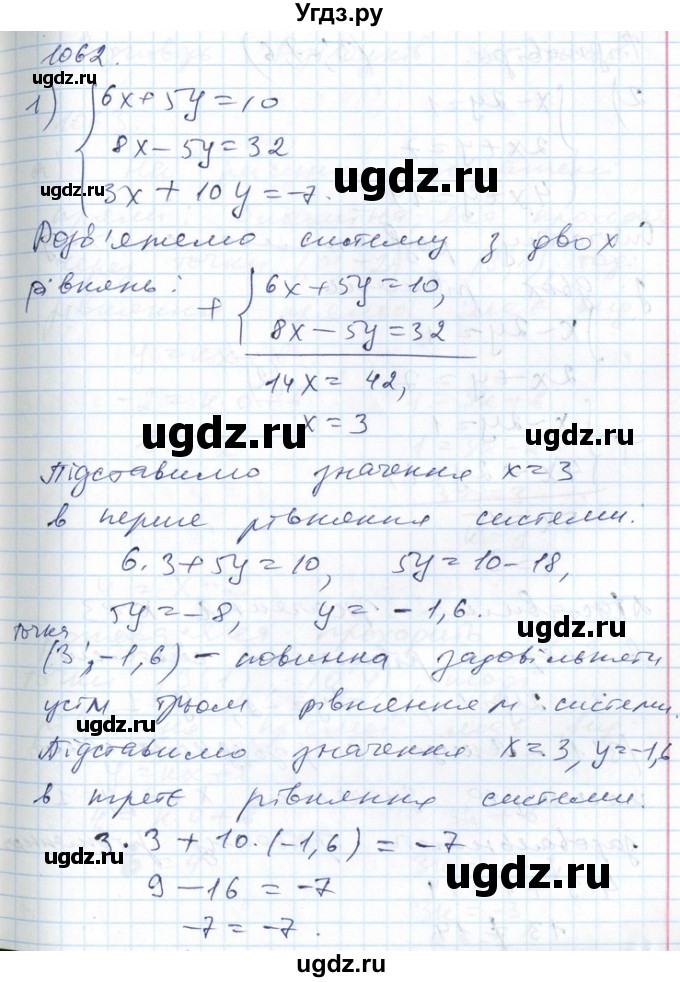 Угдз.ру
1062.
ugdz.ru ugdz.ru
1) { 6x+5y=10
8x-5y=32
3x+10y=-7.
ugdz.ru
Розв'яжемо систему з двох
рівнянь:
+ { 6x+5y=10,
8x-5y=32
ugdz.ru
14x=42,
x=3
ugdz.ru ugdz.ru
Підставимо значення x=3
в перше рівняння системи.
6·3+5y=10, 5y=10-18,
ugdz.ru ugdz.ru
5y=-8, y=-1,6.
точка
(3;-1,6) - повинна задовільняти
ugdz.ru ugdz.ru
усім трьом рівнянням системи.
Підставимо значення x=3, y=-1,6
в третє рівняння системи.
3·3+10·(-1,6)=-7
ugdz.ru ugdz.ru
9-16=-7
-7=-7.
ugdz.ru